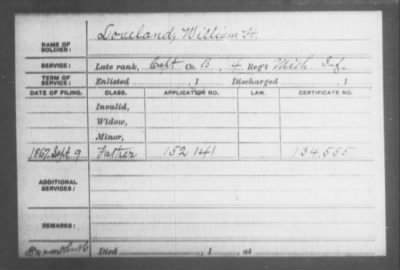 NAME OF SOLDIER: Loveland, William H.
SERVICE: Late rank, Capt Co. B, 4 Reg't Mich. Inf.
TERM OF SERVICE: Enlisted , 1 Discharged , 1
DATE OF FILING. CLASS. APPLICATION NO. LAW. CERTIFICATE NO.
Invalid,
Widow,
Minor,
1867, Sept. 9 Father 152 141 134.555
ADDITIONAL SERVICES:
REMARKS:
Died , 1 , at